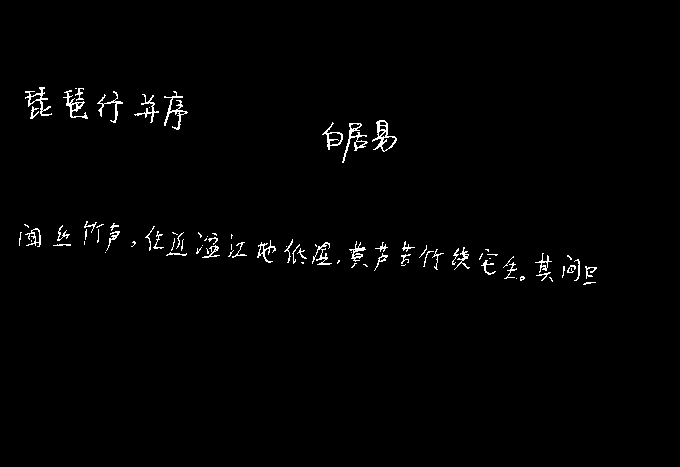 琵琶行并序
白居易
闻丝竹声，住近湓江地低湿，黄芦苦竹绕宅生。其间旦